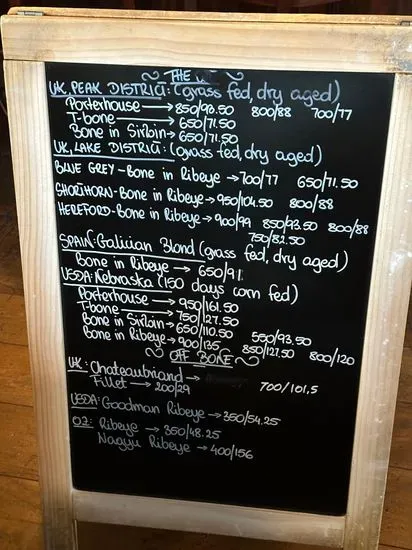 THE
UK, PEAK DISTRICT: (grass fed, dry aged)
Porterhouse → 850/93.50 800/88 700/77
T-bone → 650/71.50
Bone in Sirloin → 650/71.50
UK, LAKE DISTRICT: (grass fed, dry aged)
BLUE GREY - Bone in Ribeye → 700/77 650/71.50
SHORTHORN - Bone in Ribeye → 950/104.50 800/88
HEREFORD - Bone in Ribeye → 900/99 850/93.50 800/88
750/82.50
SPAIN: Galician Blond (grass fed, dry aged)
Bone in Ribeye → 650/91
USDA: Nebraska (150 days corn fed)
Porterhouse → 950/161.50
T-bone → 750/127.50
Bone in Sirloin → 650/110.50 550/93.50
Bone in Ribeye → 900/135 850/127.50 800/120
OFF BONE
UK: Chateaubriand → 700/101,5
Fillet → 200/29
USDA: Goodman Ribeye → 350/54.25
OZ: Ribeye → 350/48.25
Wagyu Ribeye → 400/156